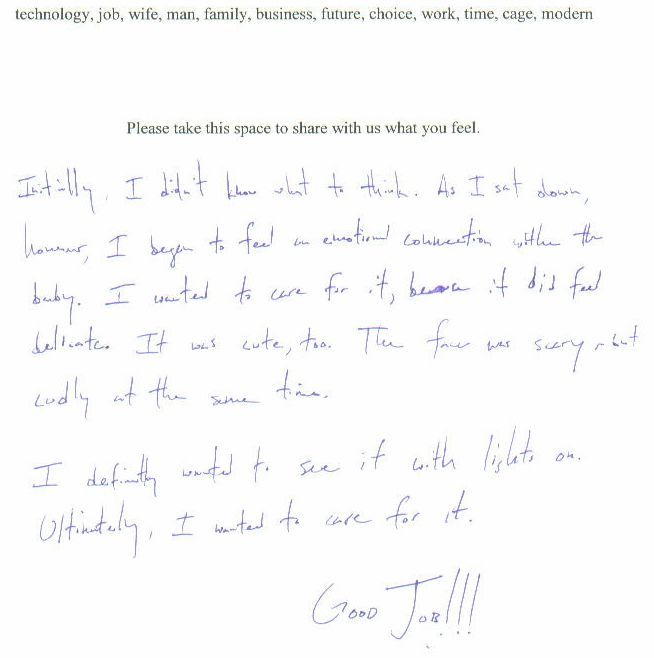 technology, job, wife, man, family, business, future, choice, work, time, cage, modern
Please take this space to share with us what you feel.
Initially, I didn't know what to think. As I sat down,
however, I began to feel an emotional connection with the
baby. I wanted to care for it, because it did feel
delicate. It was cute, too. The face was scary, but
cudly at the same time.
I definitly wanted to see it with lights on.
Ultimately, I wanted to care for it.
GOOD JOB!!!